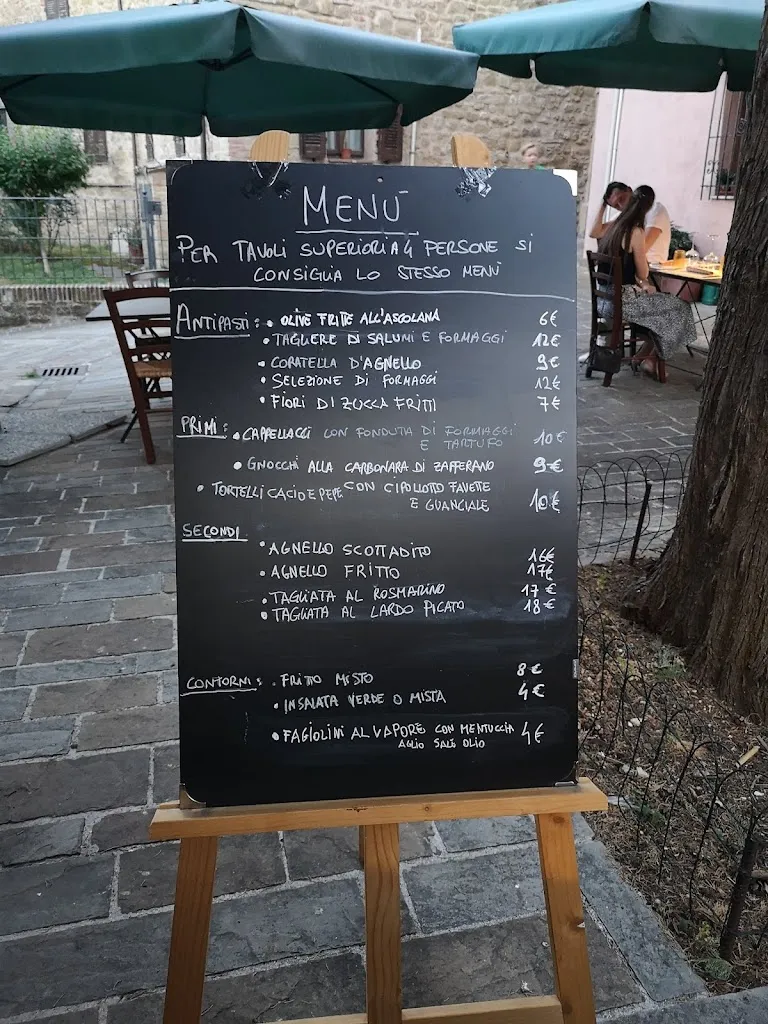 MENÙ
PER TAVOLI SUPERIORI A 4 PERSONE SI
CONSIGLIA LO STESSO MENÙ
ANTIPASTI: • OLIVE FRITTE ALL'ASCOLANA 6€
• TAGLIERE DI SALUMI E FORMAGGI 12€
• CORATELLA D'AGNELLO 9€
• SELEZIONE DI FORMAGGI 12€
• FIORI DI ZUCCA FRITTI 7€
PRIMI: • CAPPELLACCI CON FONDUTA DI FORMAGGI
E TARTUFO 10€
• GNOCCHI ALLA CARBONARA DI ZAFFERANO 9€
• TORTELLI CACIO E PEPE CON CIPOLLOTTO FAVETTE
E GUANCIALE 10€
SECONDI
• AGNELLO SCOTTADITO 16€
• AGNELLO FRITTO 17€
• TAGLIATA AL ROSMARINO 17€
• TAGLIATA AL LARDO PICATO 18€
CONTORNI: • FRITTO MISTO 8€
• INSALATA VERDE O MISTA 4€
• FAGIOLINI AL VAPORE CON MENTUCCIA 4€
AGLIO SALE OLIO